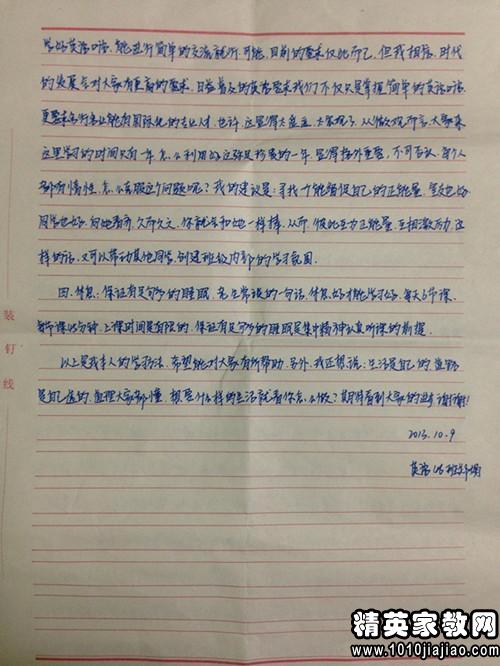 学好英语口语，能进行简单的交流就行，可能，目前的要求仅此而已，但我相信，时代
的发展会对大家有更高的要求，日益普及的英语要求我们不仅只是掌握简单的英语口语，
更要求各行各业能有国际化的专业人才，也许，这显得太盲目，大家现了，从微观而言，大家来
这里学习的时间只有一年，怎么利用好这弥足珍贵的一年显得格外重要，不可否认，每个人
都有惰性，怎么克服这个问题呢？我的建议是：寻找一个能督促自己的正能量，室友也好，
同学也好，向她看齐，久而久之，你就会和她一样棒，从而，彼此互为正能量，互相激励，这
样的话，又可以带动其他同学，创建班级内部的学习氛围。
四、休息：保证有足够多的睡眠，老生常谈的一句话，休息好才能学习好，每天6节课，
每节课45分钟，上课时间是有限的，保证有足够多的睡眠是集中精神认真听课的前提。
以上是我本人的学习方法，希望能对大家有所帮助，另外，我还想说：生活是自己的，道路
是自己选的，道理大家都懂，想要什么样的生活就看你怎么做？期待看到大家的进步，谢谢！
2013.10.9
英语
班
装
订
线
精英家教网
www.1010jiajiao.com